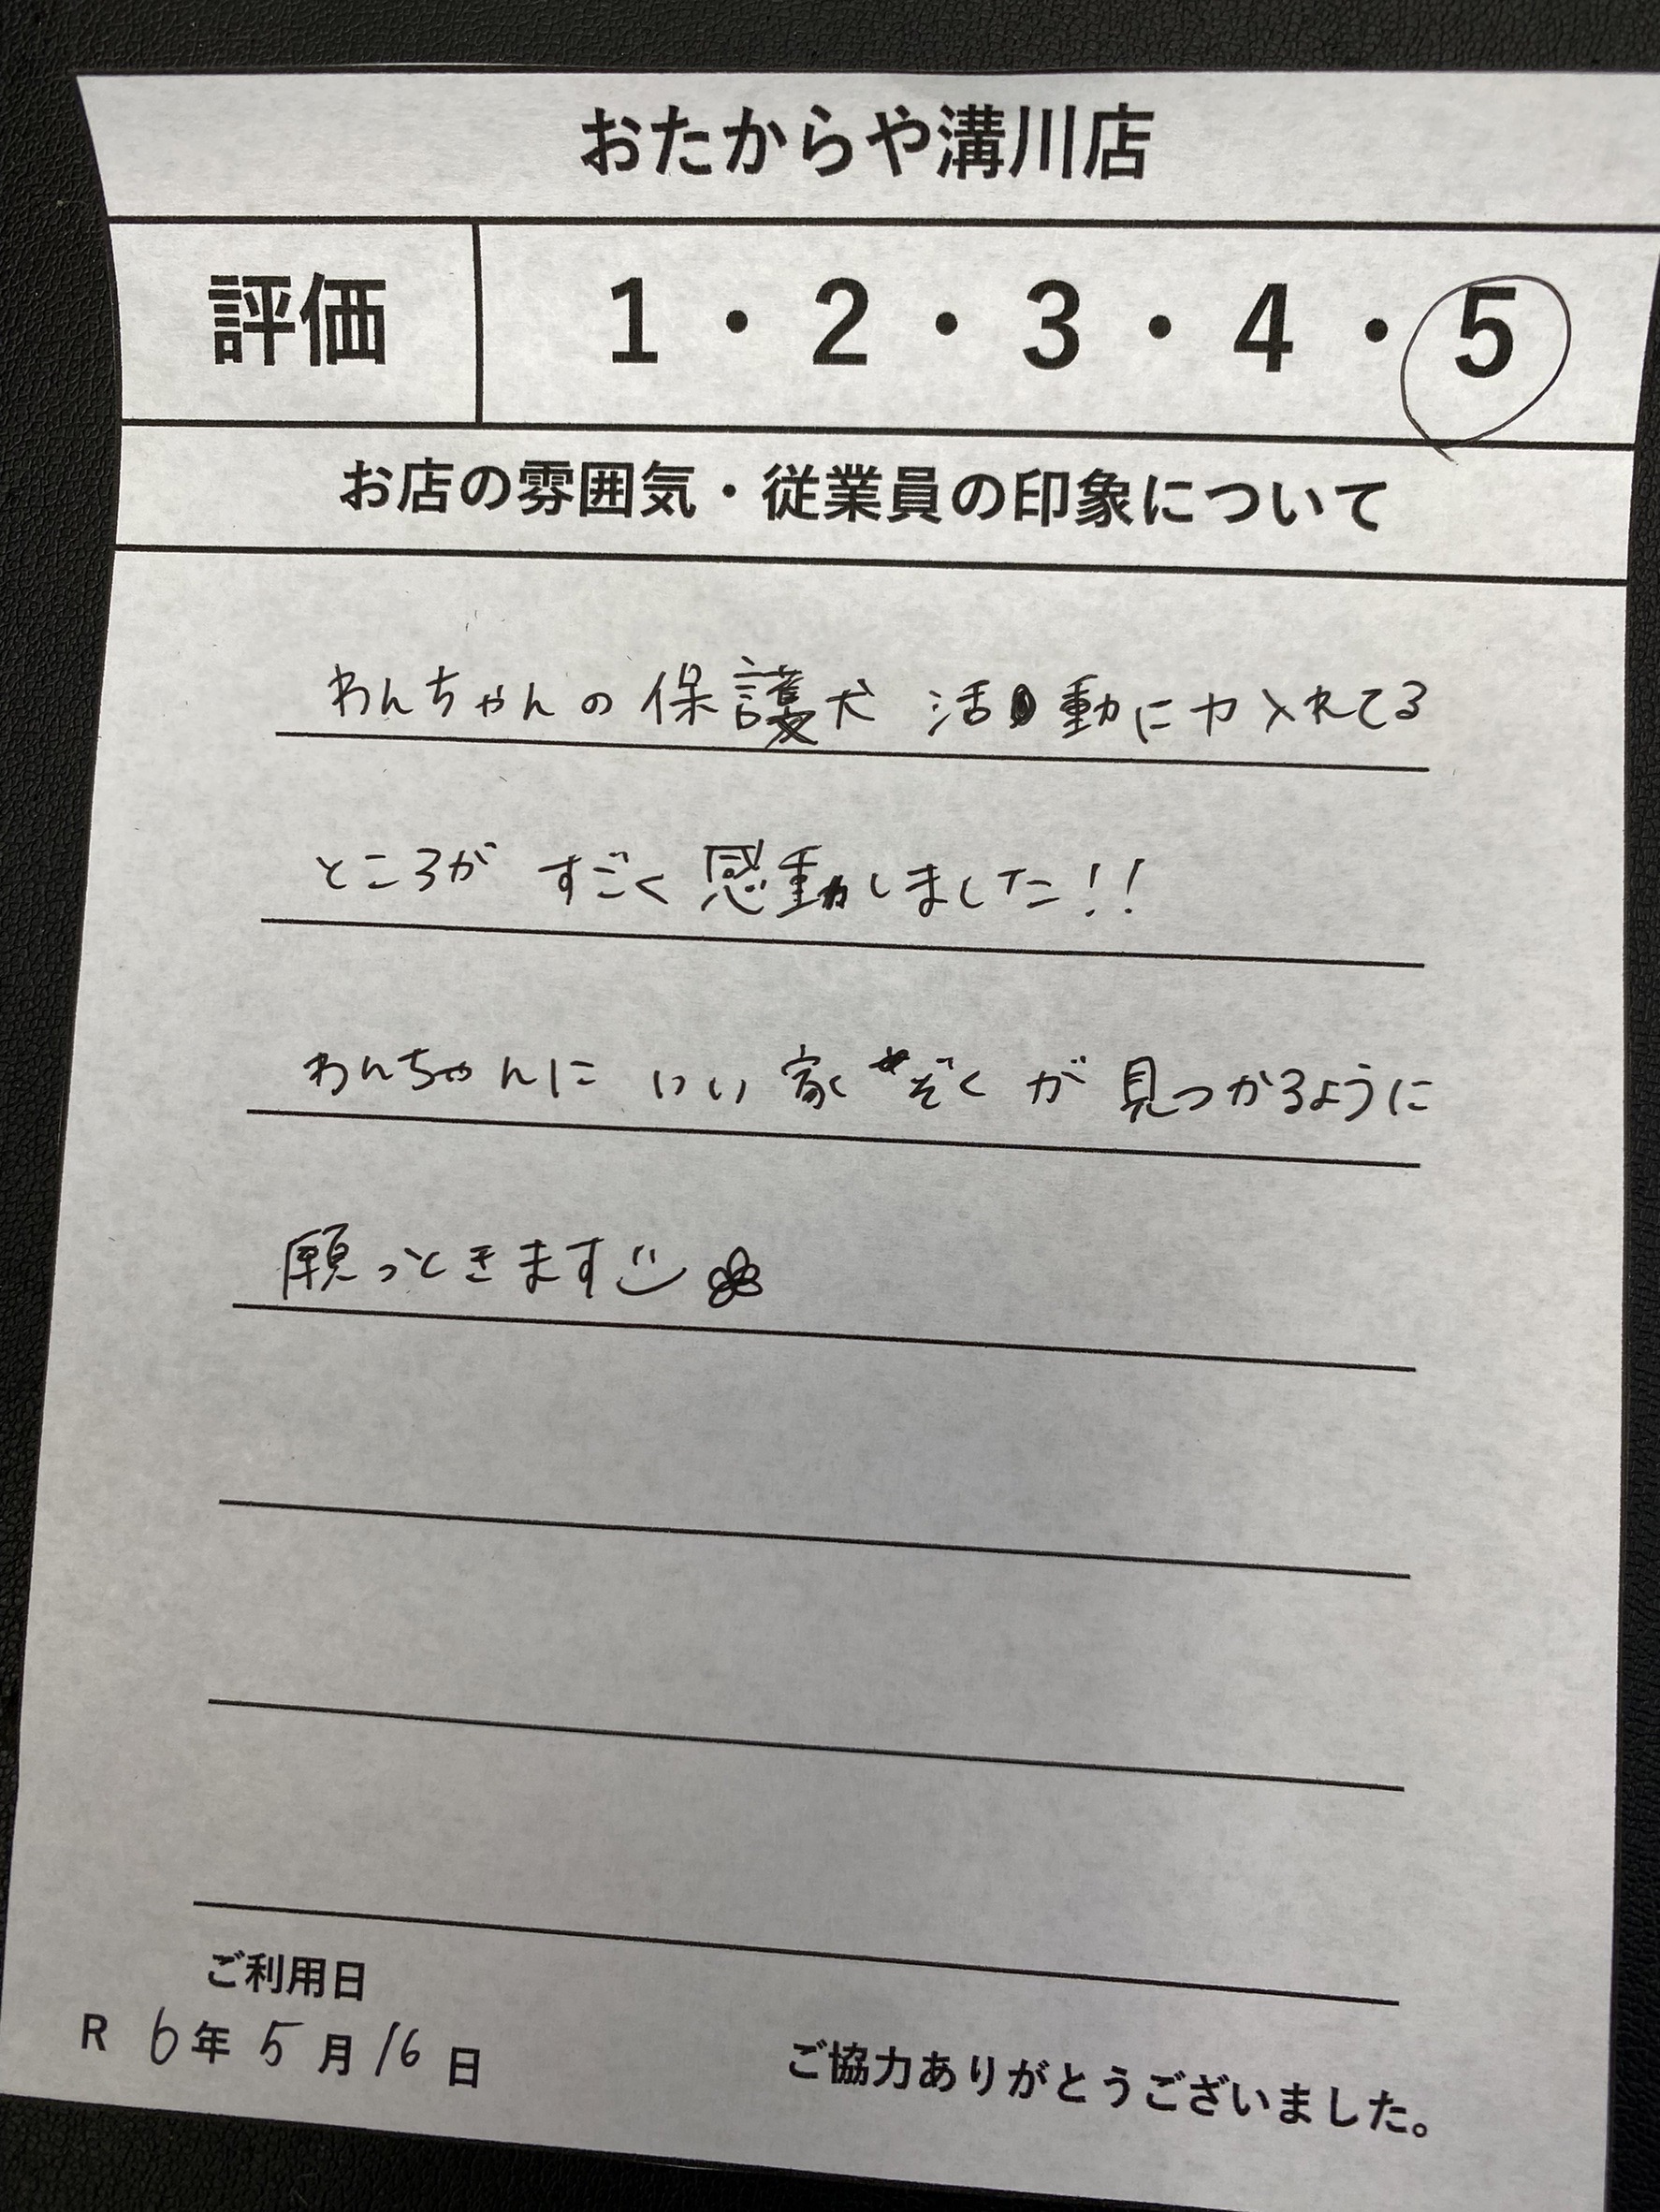 おたからや溝川店
評価 1・2・3・4・5
お店の雰囲気・従業員の印象について
わんちゃんの保護犬 活動に力入れてる
ところが すごく感動しました!!
わんちゃんに いい家ぞくが見つかるように
願っときます
ご利用日
R 6年 5月 16日
ご協力ありがとうございました。